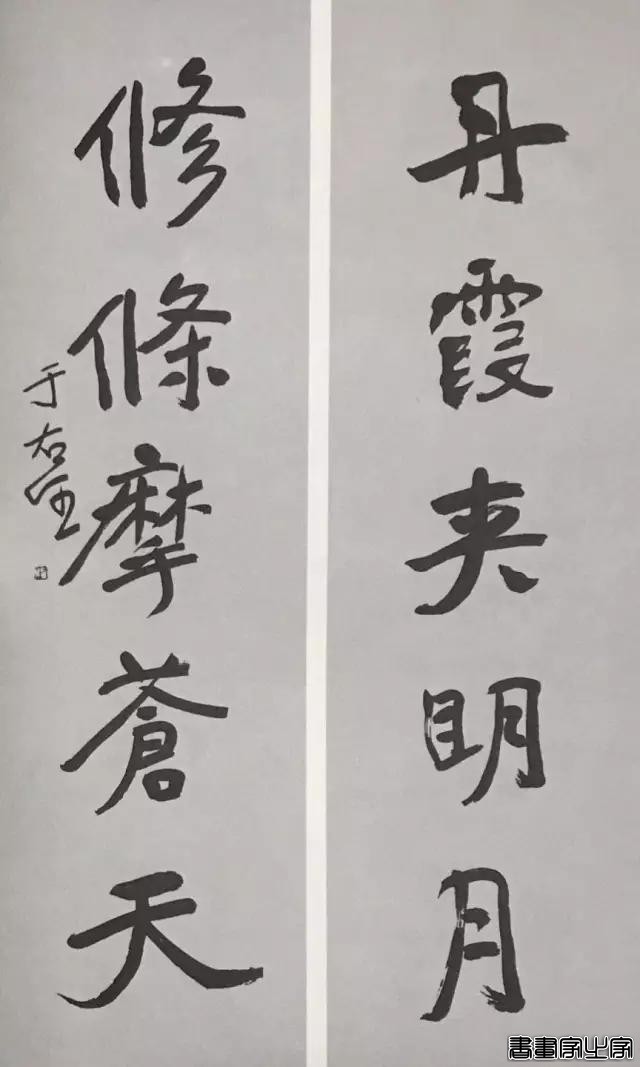 丹霞夹明月
修條摩蒼天
于右任
書畫家之家